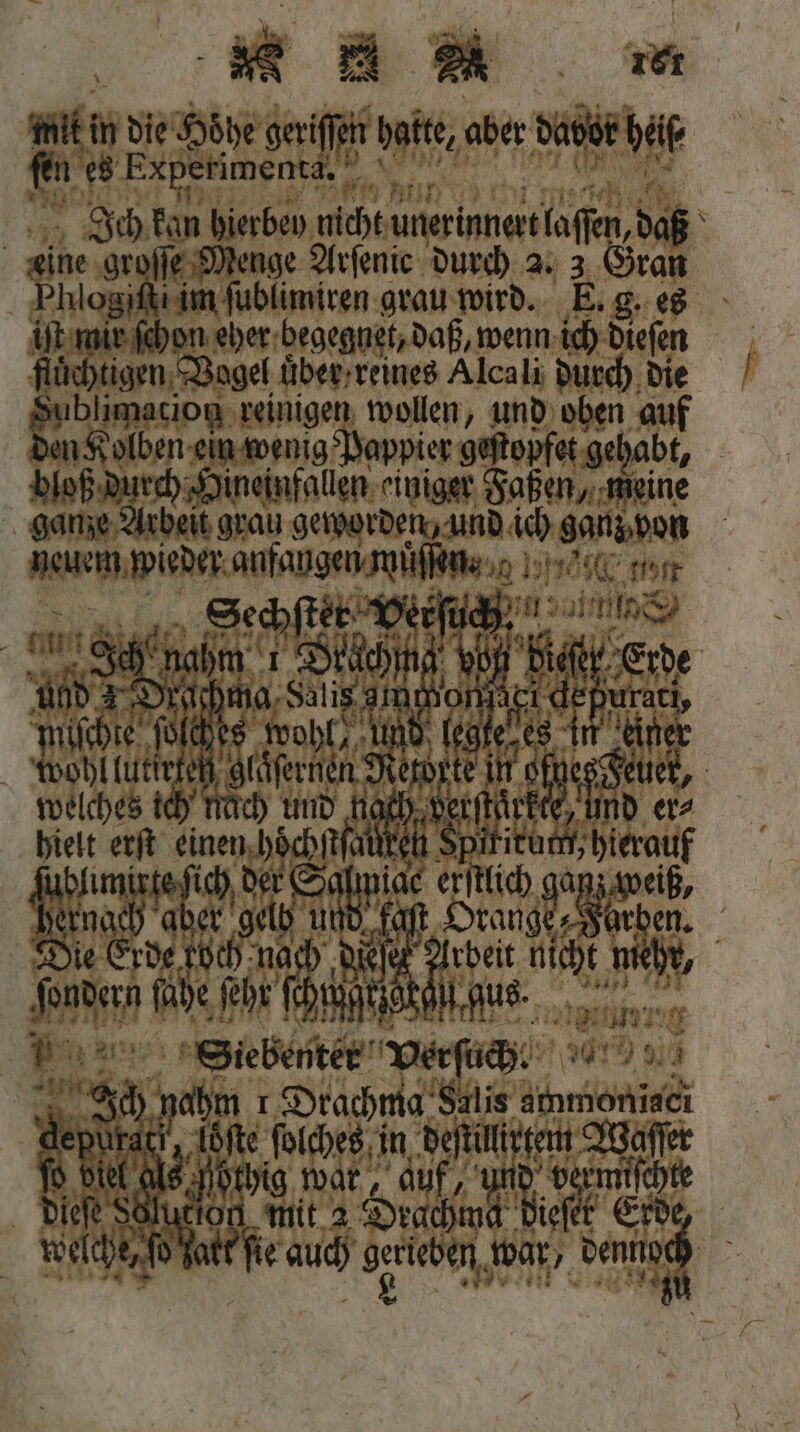 161
mit in die Hoͤhe geriſſen hatte, aber davor heiſ⸗
ſen es Experimenta.
Ich kan hierbey nicht unerinnert laſſen, daß
eine groſſe Menge Arſenic durch 2. 3 Gran
Phlogiſti im ſublimiren grau wird. E. g. es
iſt mir ſchon eher begegnet, daß, wenn ich dieſen
fluͤchtigen Vogel uͤber reines Alcali durch die
Sublimation reinigen wollen, und oben auf
den Kolben ein wenig Pappier geſtopfet gehabt,
bloß durch Hineinfallen einiger Faßen, meine
ganze Arbeit grau geworden, und ich ganz von
neuem wieder anfangen muͤſſen.
Sechſter Verſuch.
Ich nahm 1 Drachma von dieſer Erde
und 3 Drachma Salis ammoniaci depurati,
miſchte ſolches wohl, und legte es in einer
wohl lutirten glaͤſernen Retorte in ofnes Feuer,
welches ich nach und nach verſtaͤrkte, und er⸗
hielt erſt einen hoͤchſtſauren Spiritum, hierauf
ſublimirte ſich der Salmiac erſtlich ganz weiß,
hernach aber gelb und faſt Orange⸗Farben.
Die Erde roch nach dieſer Arbeit nicht mehr,
ſondern ſahe ſehr ſchwarzgrau aus.
Siebenter Verſuch.
Ich nahm 1 Drachma Salis ammoniaci
depurati, loͤſte ſolches in deſtillirtem Waſſer
ſo viel als noͤthig war, auf, und vermiſchte
dieſe Solution mit 2 Drachma dieſer Erde,
welche, ſo zart ſie auch gerieben war, dennoch
L
zu